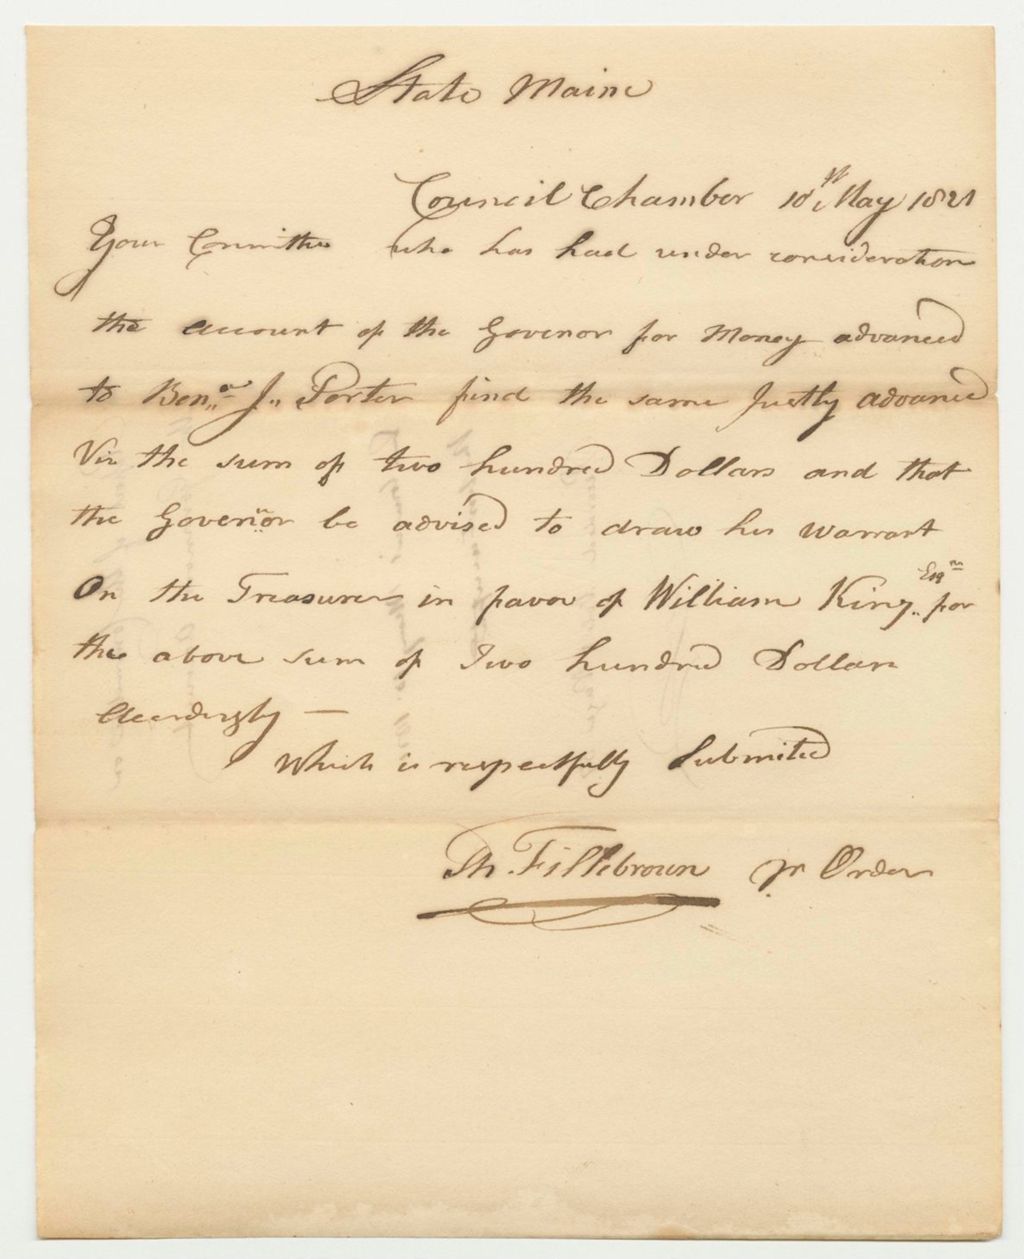 State Maine
Council Chamber 10th May 1821
Your Committee who has had under consideration
the account of the Govenor for Money advanced
to Benj.a J. Porter find the same Justly advanced
Viz the sum of two hundred Dollars and that
the Govenor be advised to draw his Warrant
On the Treasurer in favor of William King Esqr. for
the above sum of Two hundred Dollars
Accordingly —
Which is respectfully Submitted
Th. Fillebrown pr Order